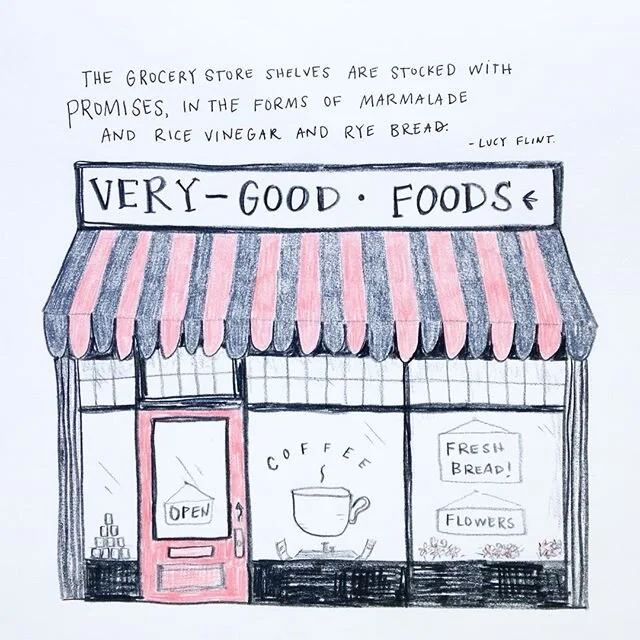 THE GROCERY STORE SHELVES ARE STOCKED WITH
PROMISES, IN THE FORMS OF MARMALADE
AND RICE VINEGAR AND RYE BREAD.
- LUCY FLINT.
VERY-GOOD · FOODS
COFFEE
FRESH
BREAD!
OPEN
FLOWERS